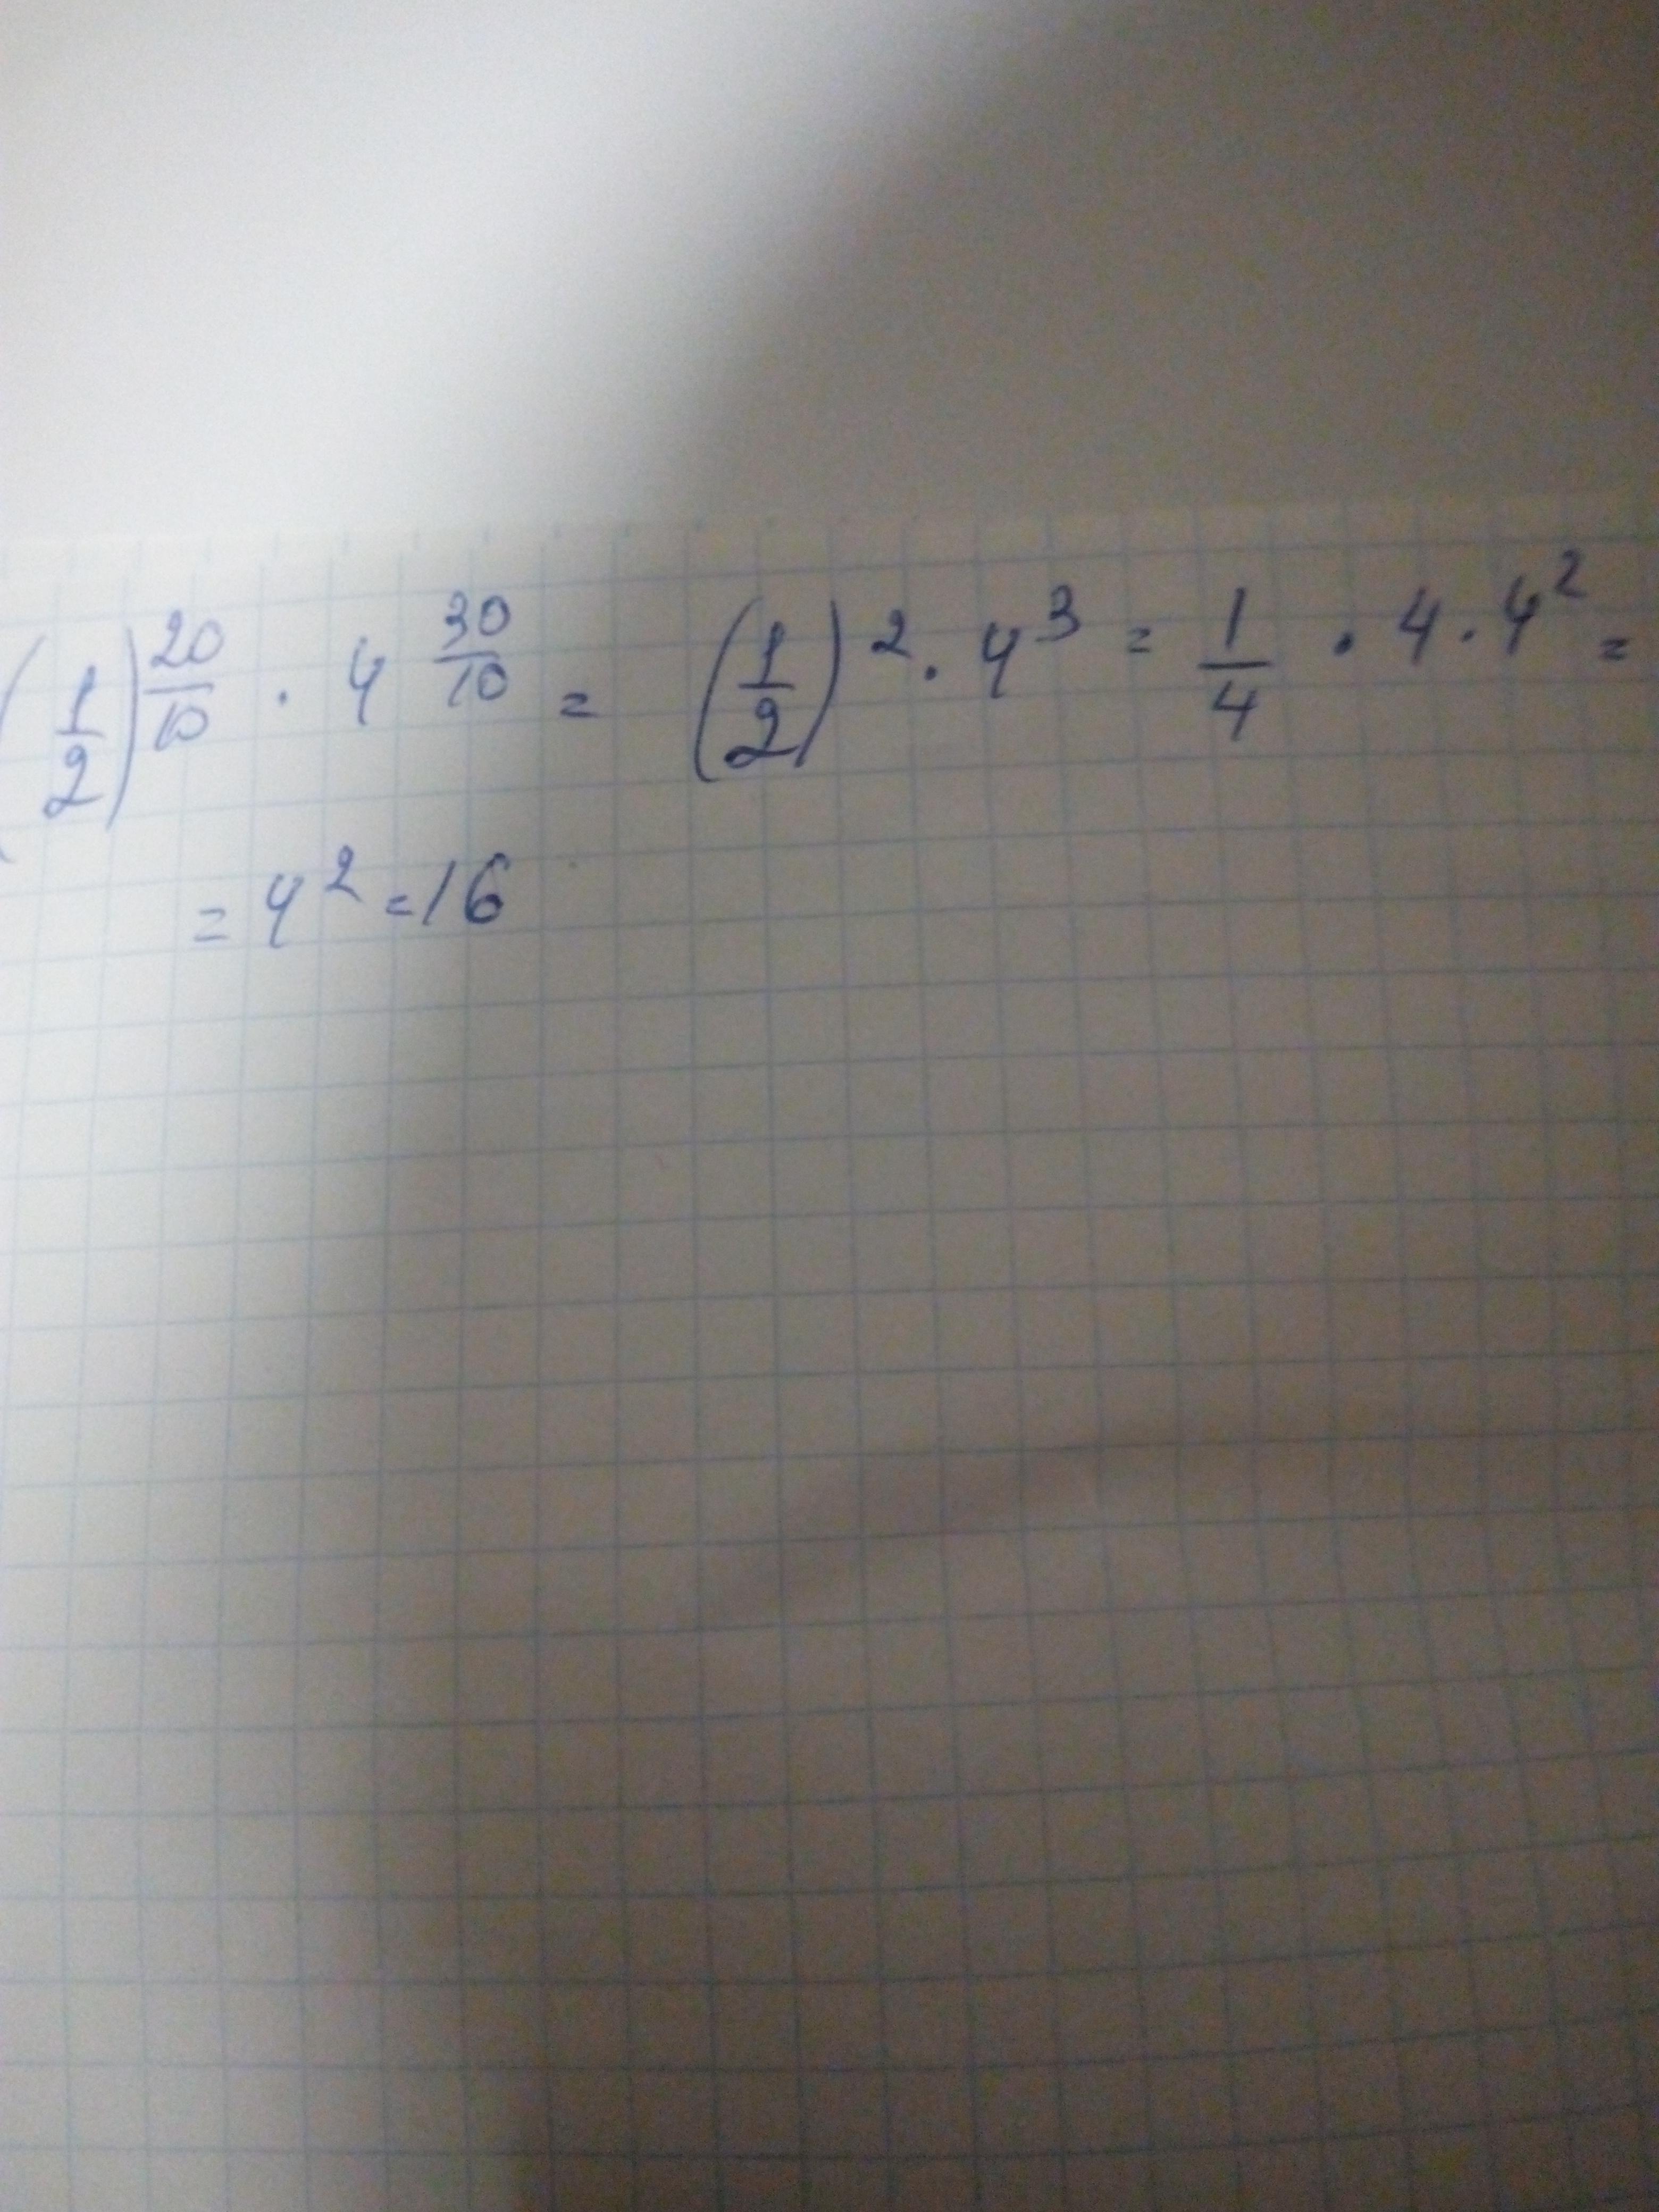 (1/2)^(20/10) · 4^(30/10) = (1/2)^2 · 4^3 = 1/4 · 4 · 4^2 =
= 4^2 = 16